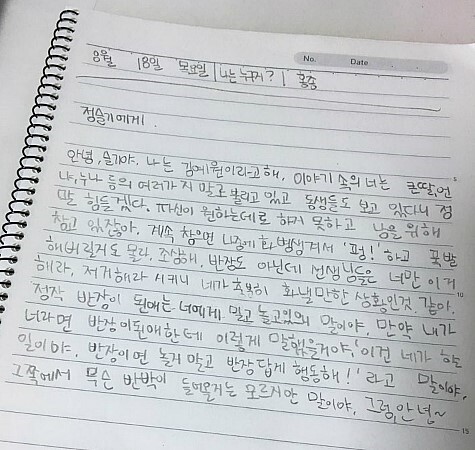 No. Date
8월 18일 목요일 나는 누구지? 홍중
정슬기에게
안녕, 슬기야. 나는 김예원이라고해, 이야기 속의 너는 큰딸,언
니,누나 등의 여러가지 말로 불리고 있고 동생들도 보고 있다니 정
말 힘들겠다. 자신이 원하는데로 하지 못하고 남을 위해
참고 있잖아. 계속 참으면 나중에 화병생겨서 '펑!' 하고 폭발
해버릴거도 몰라, 조심해, 반장도 아닌데 선생님들은 너만 이거
해라, 저거해라 시키니 네가 충분히 화낼만한 상황인것 같아.
10
정작 반장이 된애는 너에게 맡고 놀고있으니 말이야, 만약 내가
너라면 반장이된애한테 이렇게 말했을거야, '이건 네가 하는
일이야. 반장이면 놀지 말고 반장 답게 행동해!' 라고 말이야,
그쪽에서 무슨 반박이 들어올거는 모르지만 말이야, 그럼, 안녕~
15